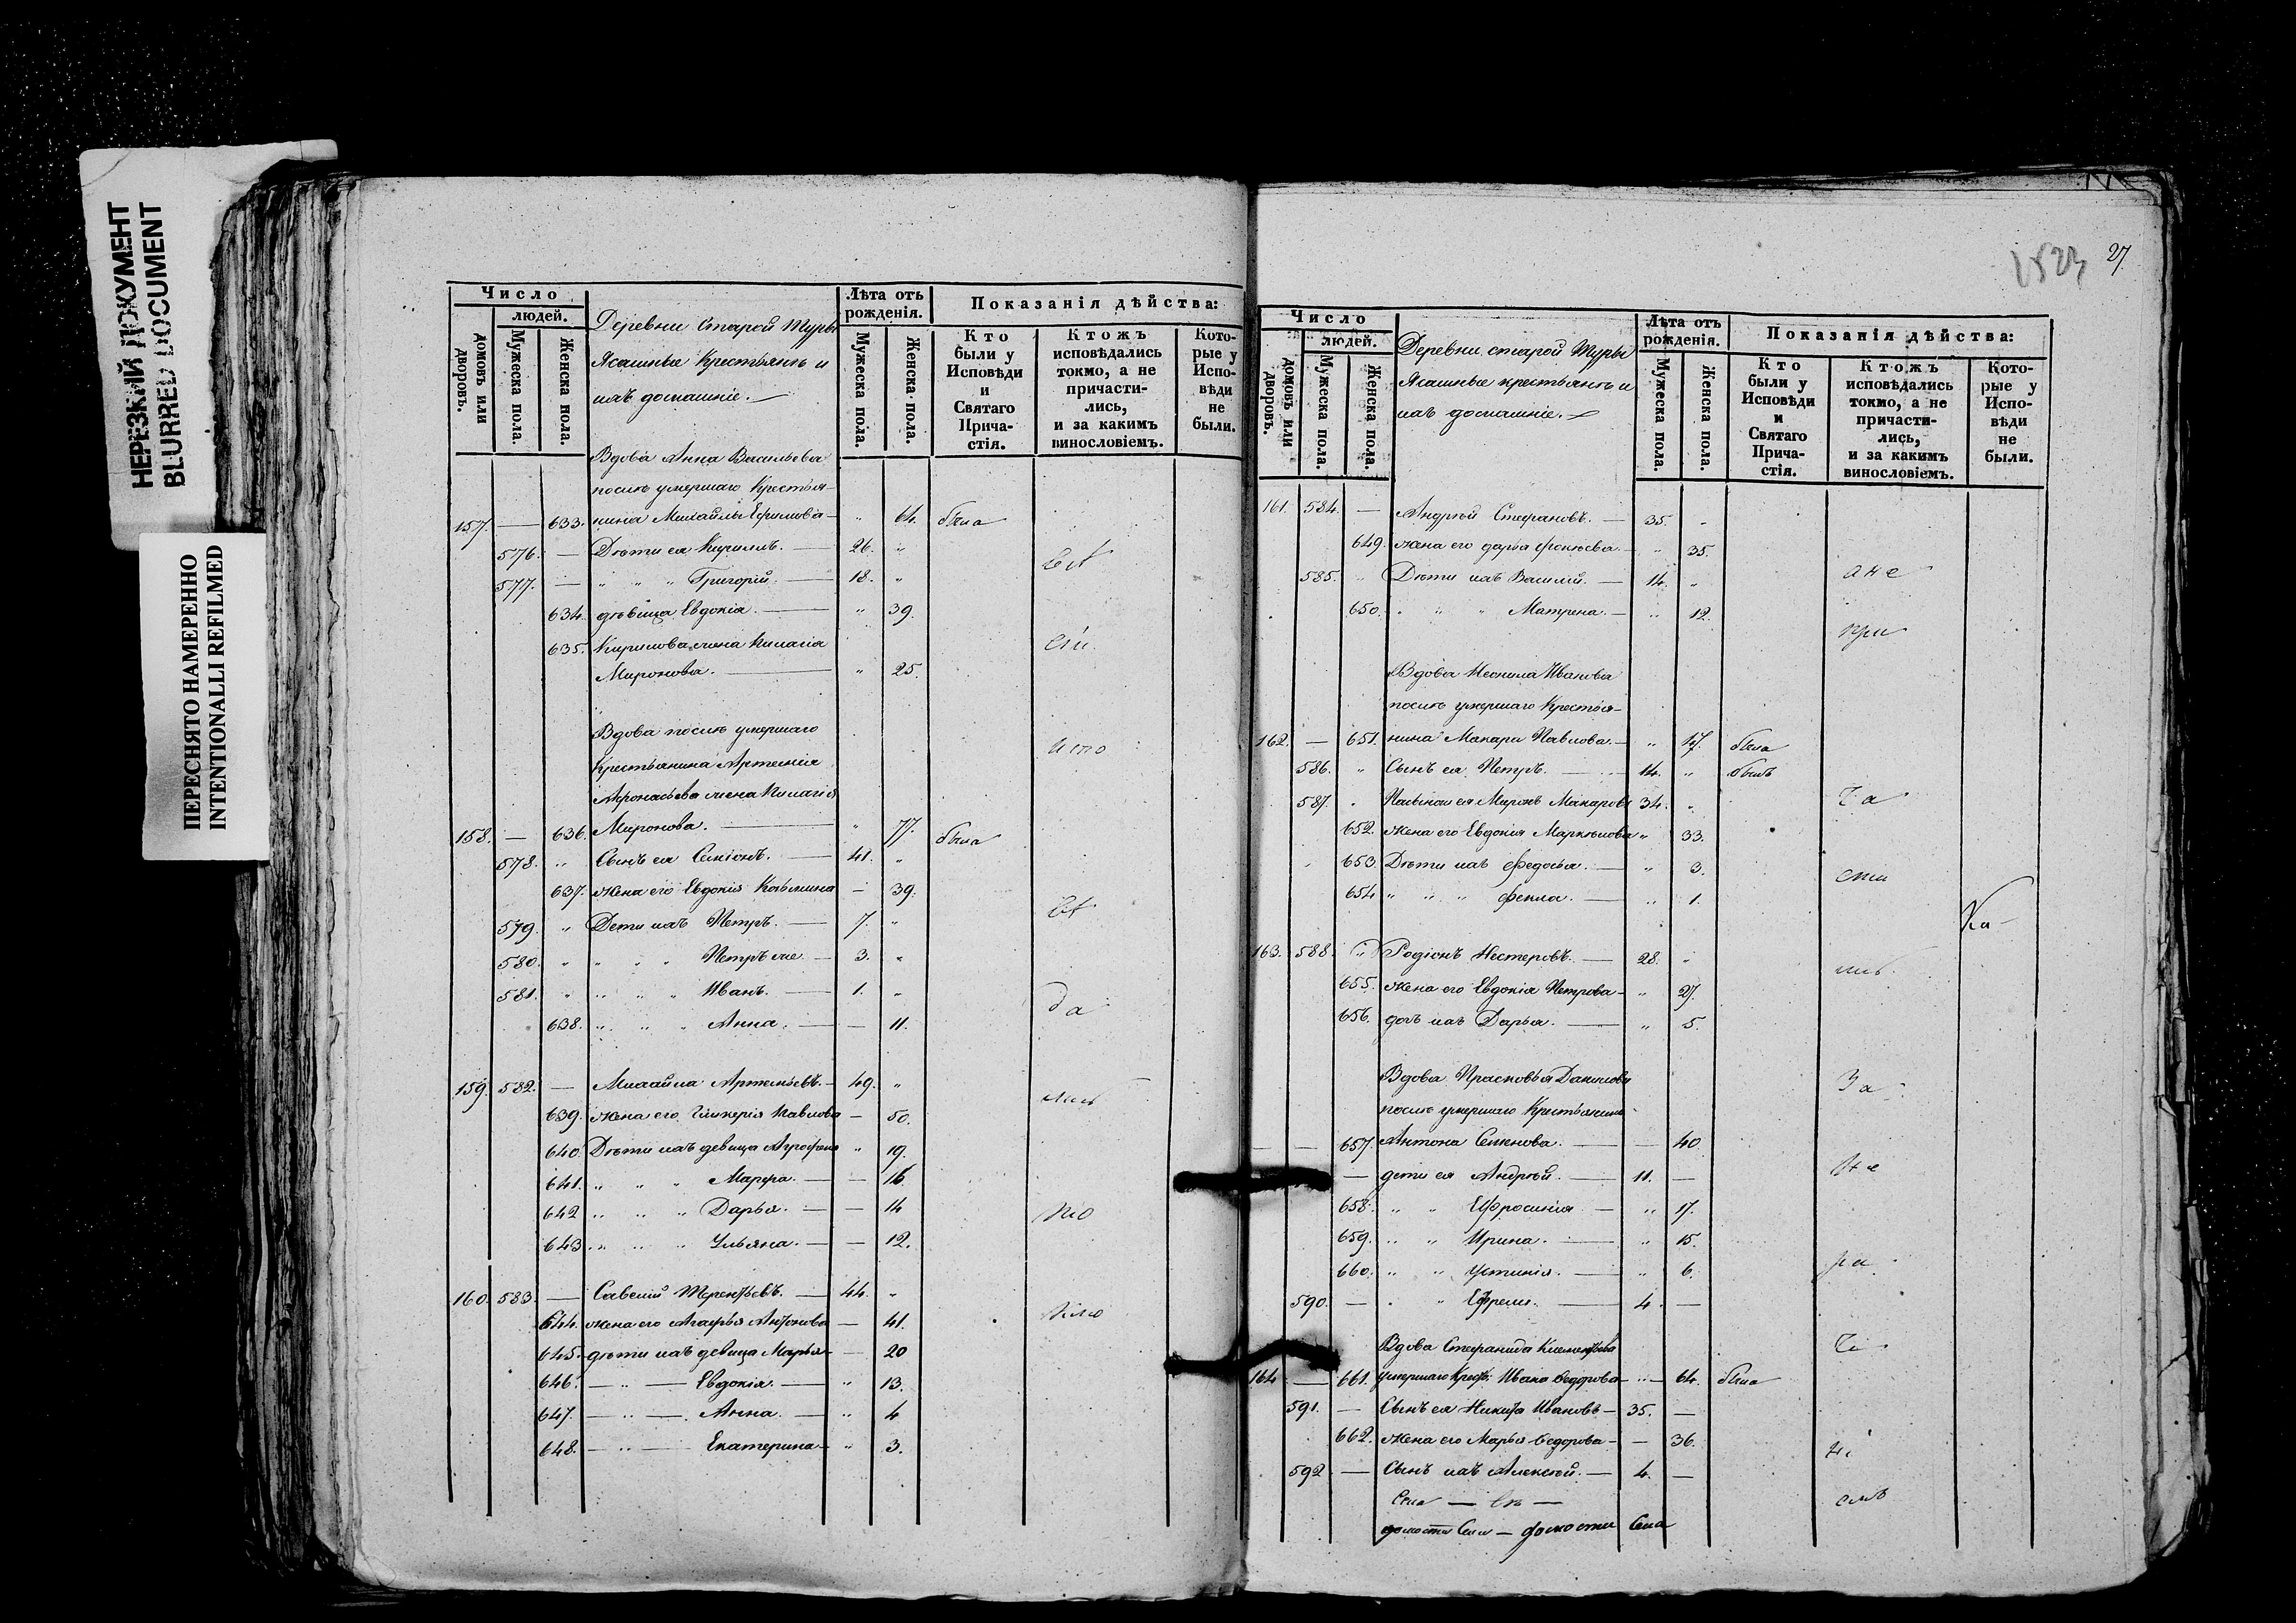 НЕРЕЗКИЙ ДОКУМЕНТ
BLURRED DOCUMENT
ПЕРЕСНЯТО НАМЕРЕННО
INTENTIONALLI REFILMED
Число
людей.
домовъ или дворовъ.
Мужеска пола.
Женска пола.
Деревни Старой Туры
Ясашные Крестьянъ и
ихъ домашніе.
Лѣта отъ рожденія.
Мужеска пола.
Женска пола.
Показанія дѣйства:
Кто были у Исповѣди и Святаго Причастія.
Ктожъ исповѣдались токмо, а не причастились, и за какимъ винословіемъ.
Которые у Исповѣди не были.
Вдова Анна Васильева
послѣ умершаго Крестья-
157. — 633. нина Михайлы Ефимова — " 64. была
576. — Дѣти ея Кириллъ. — 26. "
577. — " " " Григорій. — 18. "
634. дѣвица Евдокія. — " 39.
635. Кирилова жена Пилагія
Миронова. — " 25.
Вдова послѣ умершаго
Крестьянина Артемія
Афонасьева жена Пилагія
158. — 636. Миронова. — " 77. была
578. " Сынъ ея Семіонъ. — 41. "
637. жена его Евдокія Козьмина — 39.
579. " Дети ихъ Петръ. — 7. "
580. " " " " Петръ же — 3. "
581. " " " " Иванъ. — 1. "
638. " " " Анна. — — 11.
159. 582. — Михайла Артемьевъ. — 49. "
639. жена его Гликерія Павлова — 50.
640. Дѣти ихъ девица Агрофена " 19.
641. " " " Марфа. — — 16
642 " " " Дарья. — — 14
643 " " " Ульяна. — — 12.
160. 583. — Савелий Терентьевъ. — 44. "
644. жена его Агафья Антонова — 41.
645. дѣти ихъ девица Марья — — 20
646. — " — Евдокія. — " 13.
647. — " — Анна. — " 4
648. — " — Екатерина — " 3.
1823 27
Число
людей.
домовъ или дворовъ.
Мужеска пола.
Женска пола.
Деревни старой Туры
Ясашные крестьянъ и
ихъ домашніе.
Лѣта отъ рожденія.
Мужеска пола.
Женска пола.
Показанія дѣйства:
Кто были у Исповѣди и Святаго Причастія.
Ктожъ исповѣдались токмо, а не причастились, и за какимъ винословіемъ.
Которые у Исповѣди не были.
161. 584. — Андрей Стефановъ. — 35. "
649. жена его дарья — " 35.
585. " Дѣти ихъ Василий. — 14. "
650. " " " Матрена. — " 12.
Вдова Неонила Иванова
послѣ умершаго Крестья-
162. — 651. нина Макара Павлова. — " была
586. " Сынъ ея Петръ. — 14. " былъ
587. " ея Миронъ Макаровъ 34. "
652. жена его Евдокія " 33.
653 Дѣти ихъ Федосья. — " 3.
654 " " " Фекла. — " 1.
163. 588. " Родіонъ Нестеровъ. — 28. "
655. жена его Евдокія Петрова — " 27.
656. дочь ихъ Дарья. — " 5.
Вдова Прасковья Данилова
послѣ умершаго Крестьянина
— — 657. Антона Семенова. — — 40.
— дети ея Андрей. — 11. —
658. " " Ефросинія — " 17.
659. " " Ирина. — " 15.
660. " " Устинія. — " 6.
590. — " " Ефремъ. — 4. —
Вдова Стефанида Клементьева
164. — 661. умершаго Крест: Ивана Федорова — " 64. была
591. — Сынъ ея Никита Ивановъ — 35. —
662. жена его Марья Федорова — — 36.
592 — Сынъ ихъ Алексѣй. — 4. —